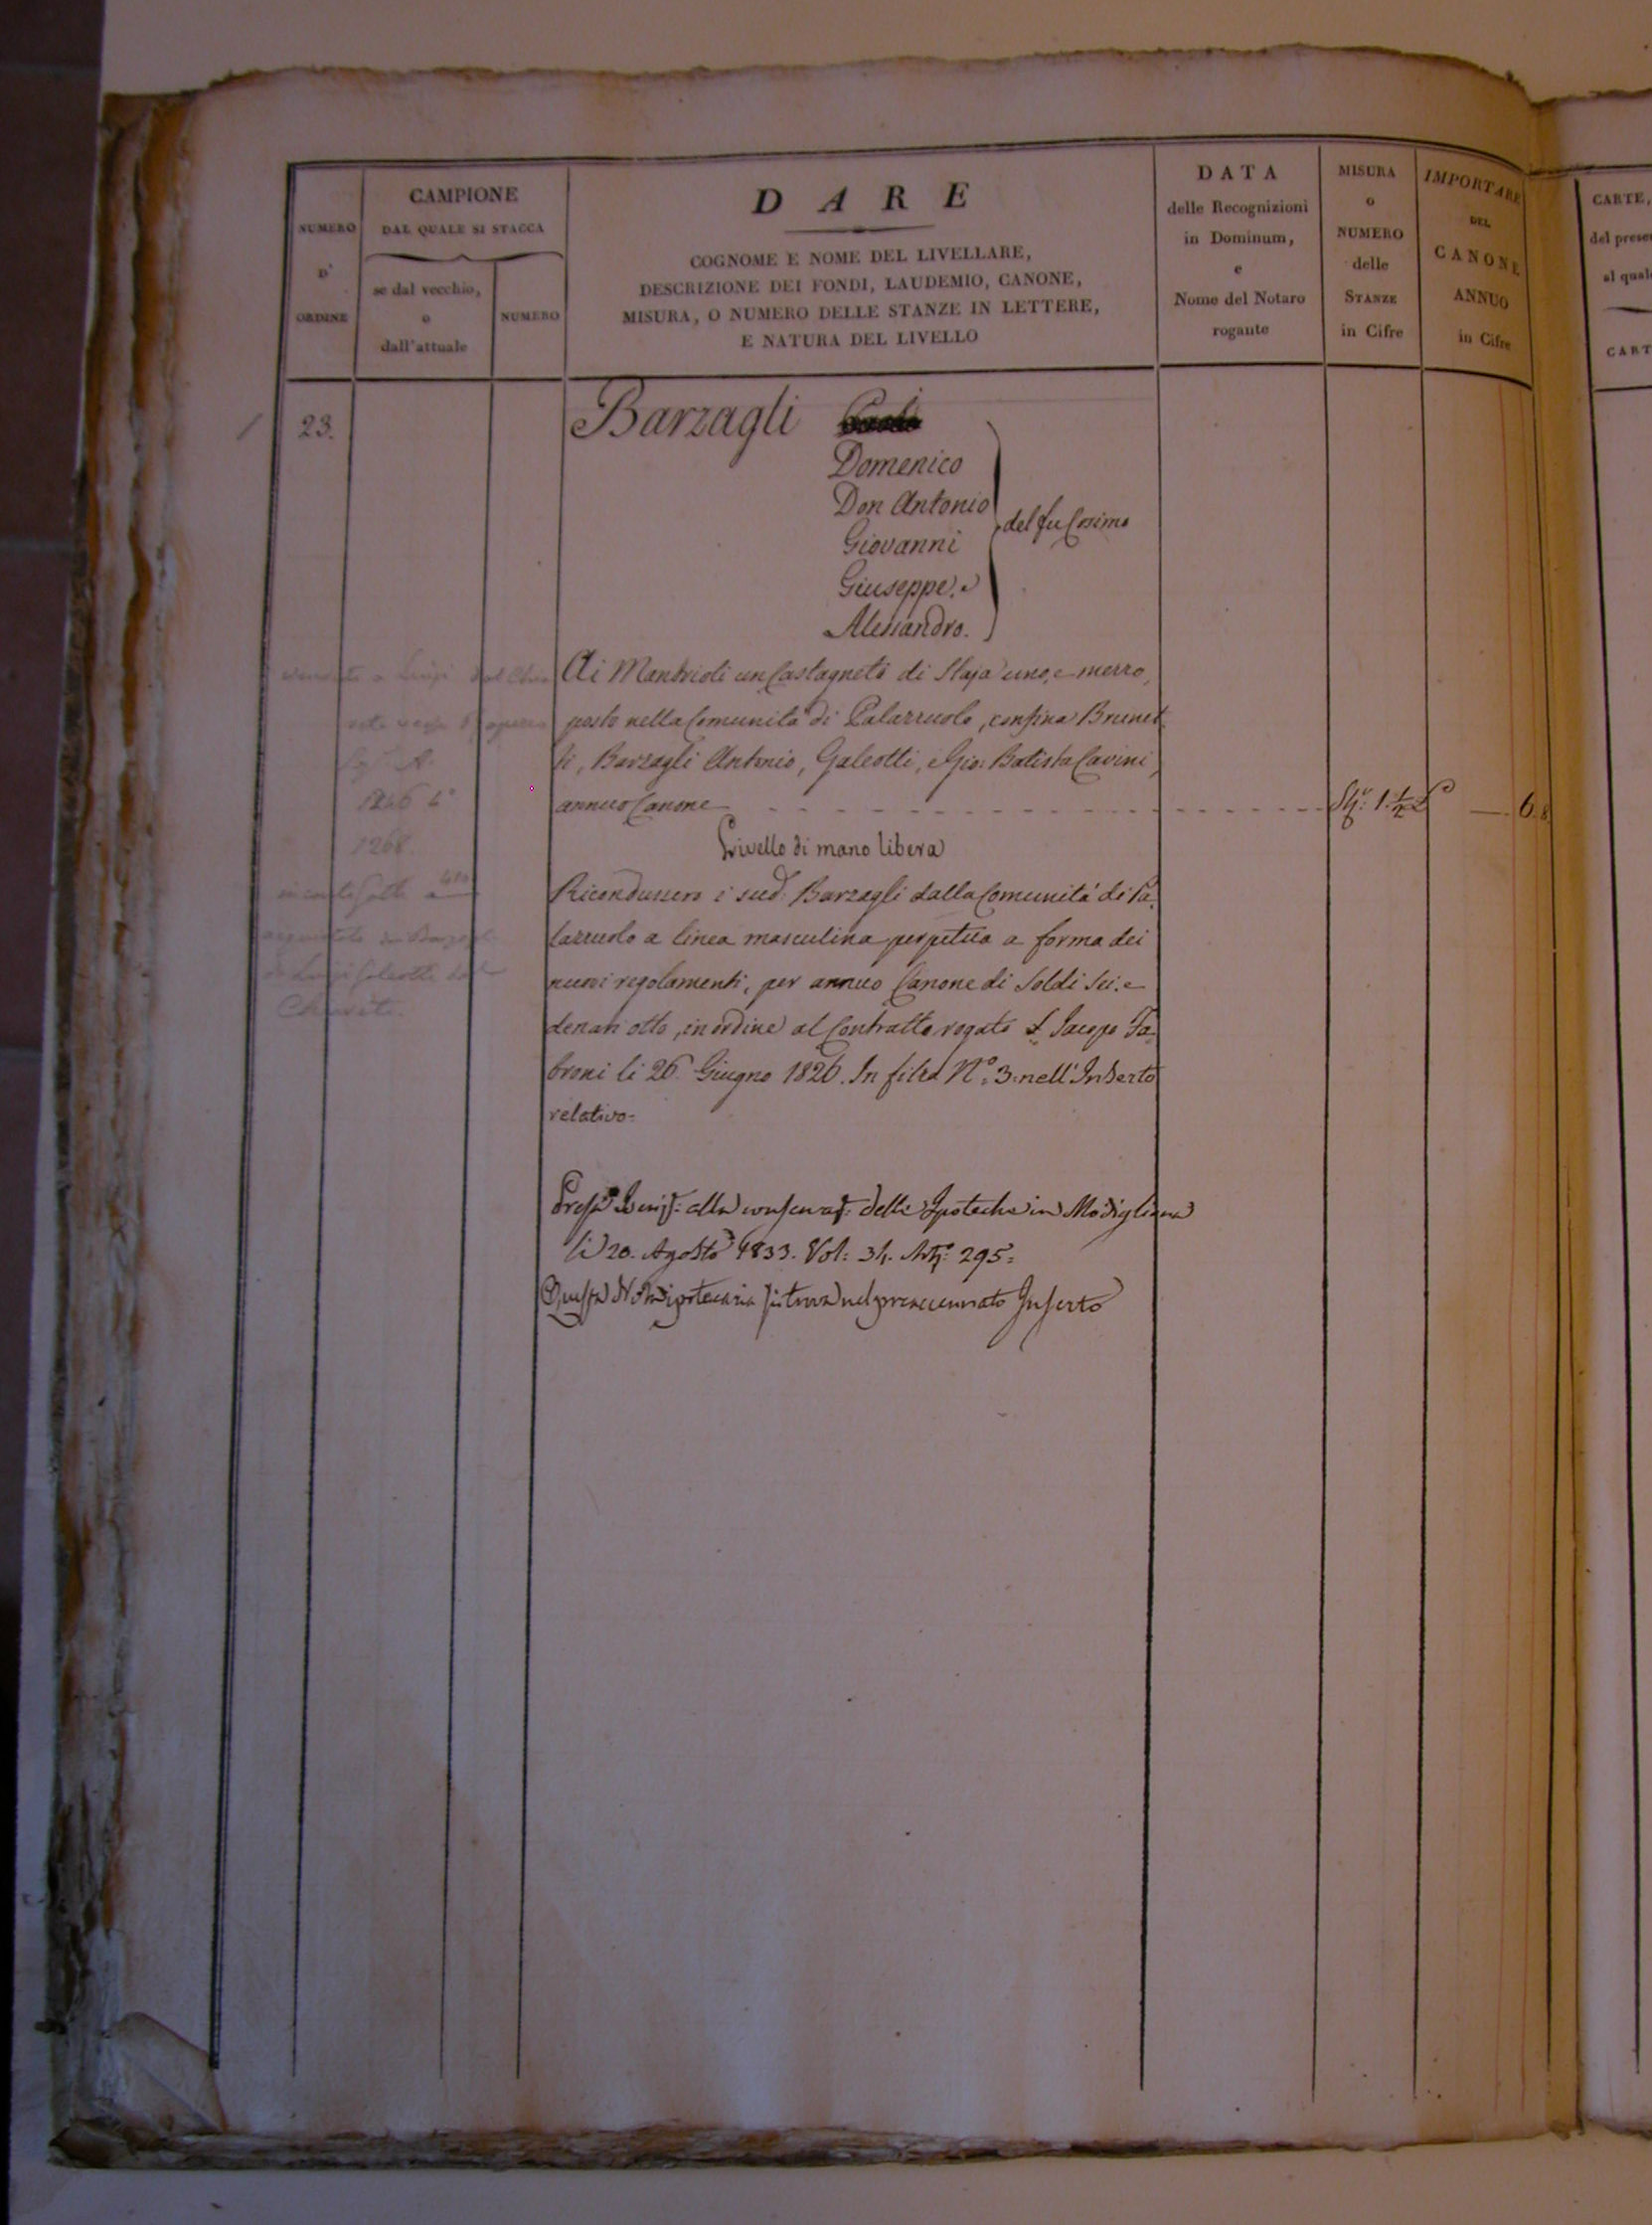 NUMERO
D'
ORDINE
CAMPIONE
DAL QUALE SI STACCA
se dal vecchio,
o
dall'attuale
NUMERO
DARE
COGNOME E NOME DEL LIVELLARE,
DESCRIZIONE DEI FONDI, LAUDEMIO, CANONE,
MISURA, O NUMERO DELLE STANZE IN LETTERE,
E NATURA DEL LIVELLO
DATA
delle Recognizioni
in Dominum,
e
Nome del Notaro
rogante
MISURA
o
NUMERO
delle
STANZE
in Cifre
IMPORTARE
DEL
CANONE
ANNUO
in Cifre
CARTE,
al
23. Barzagli
Domenico
Don Antonio
Giovanni
Giuseppe, e
Alessandro.
del fu Cosimo
Ai Mantrioli un Castagneto di Staja uno, e mezzo,
posto nella Comunità di Palazzuolo, confina Brunet-
ti, Barzagli Antonio, Galeotti, e Gio: Batista Cavini,
annuo Canone - - - 1. 1/2 — 6. 8
Livello di mano libera
Ricondussero i sud: Barzagli dalla Comunità di Pa-
lazzuolo a linea masculina perpetua a forma dei
nuovi regolamenti, per annuo Canone di Soldi Sei, e
denari otto, in ordine al Contratto rogato Jacopo Fa-
broni li 26. Giugno 1826. In filza N.° 3. nell'Inserto
relativo.
alla delle Ipoteche in Modigliana
li 20. Agosto 1833. Vol: 34. 295.
Questa Nota ipotecaria si trova nel preaccennato Inserto
1268